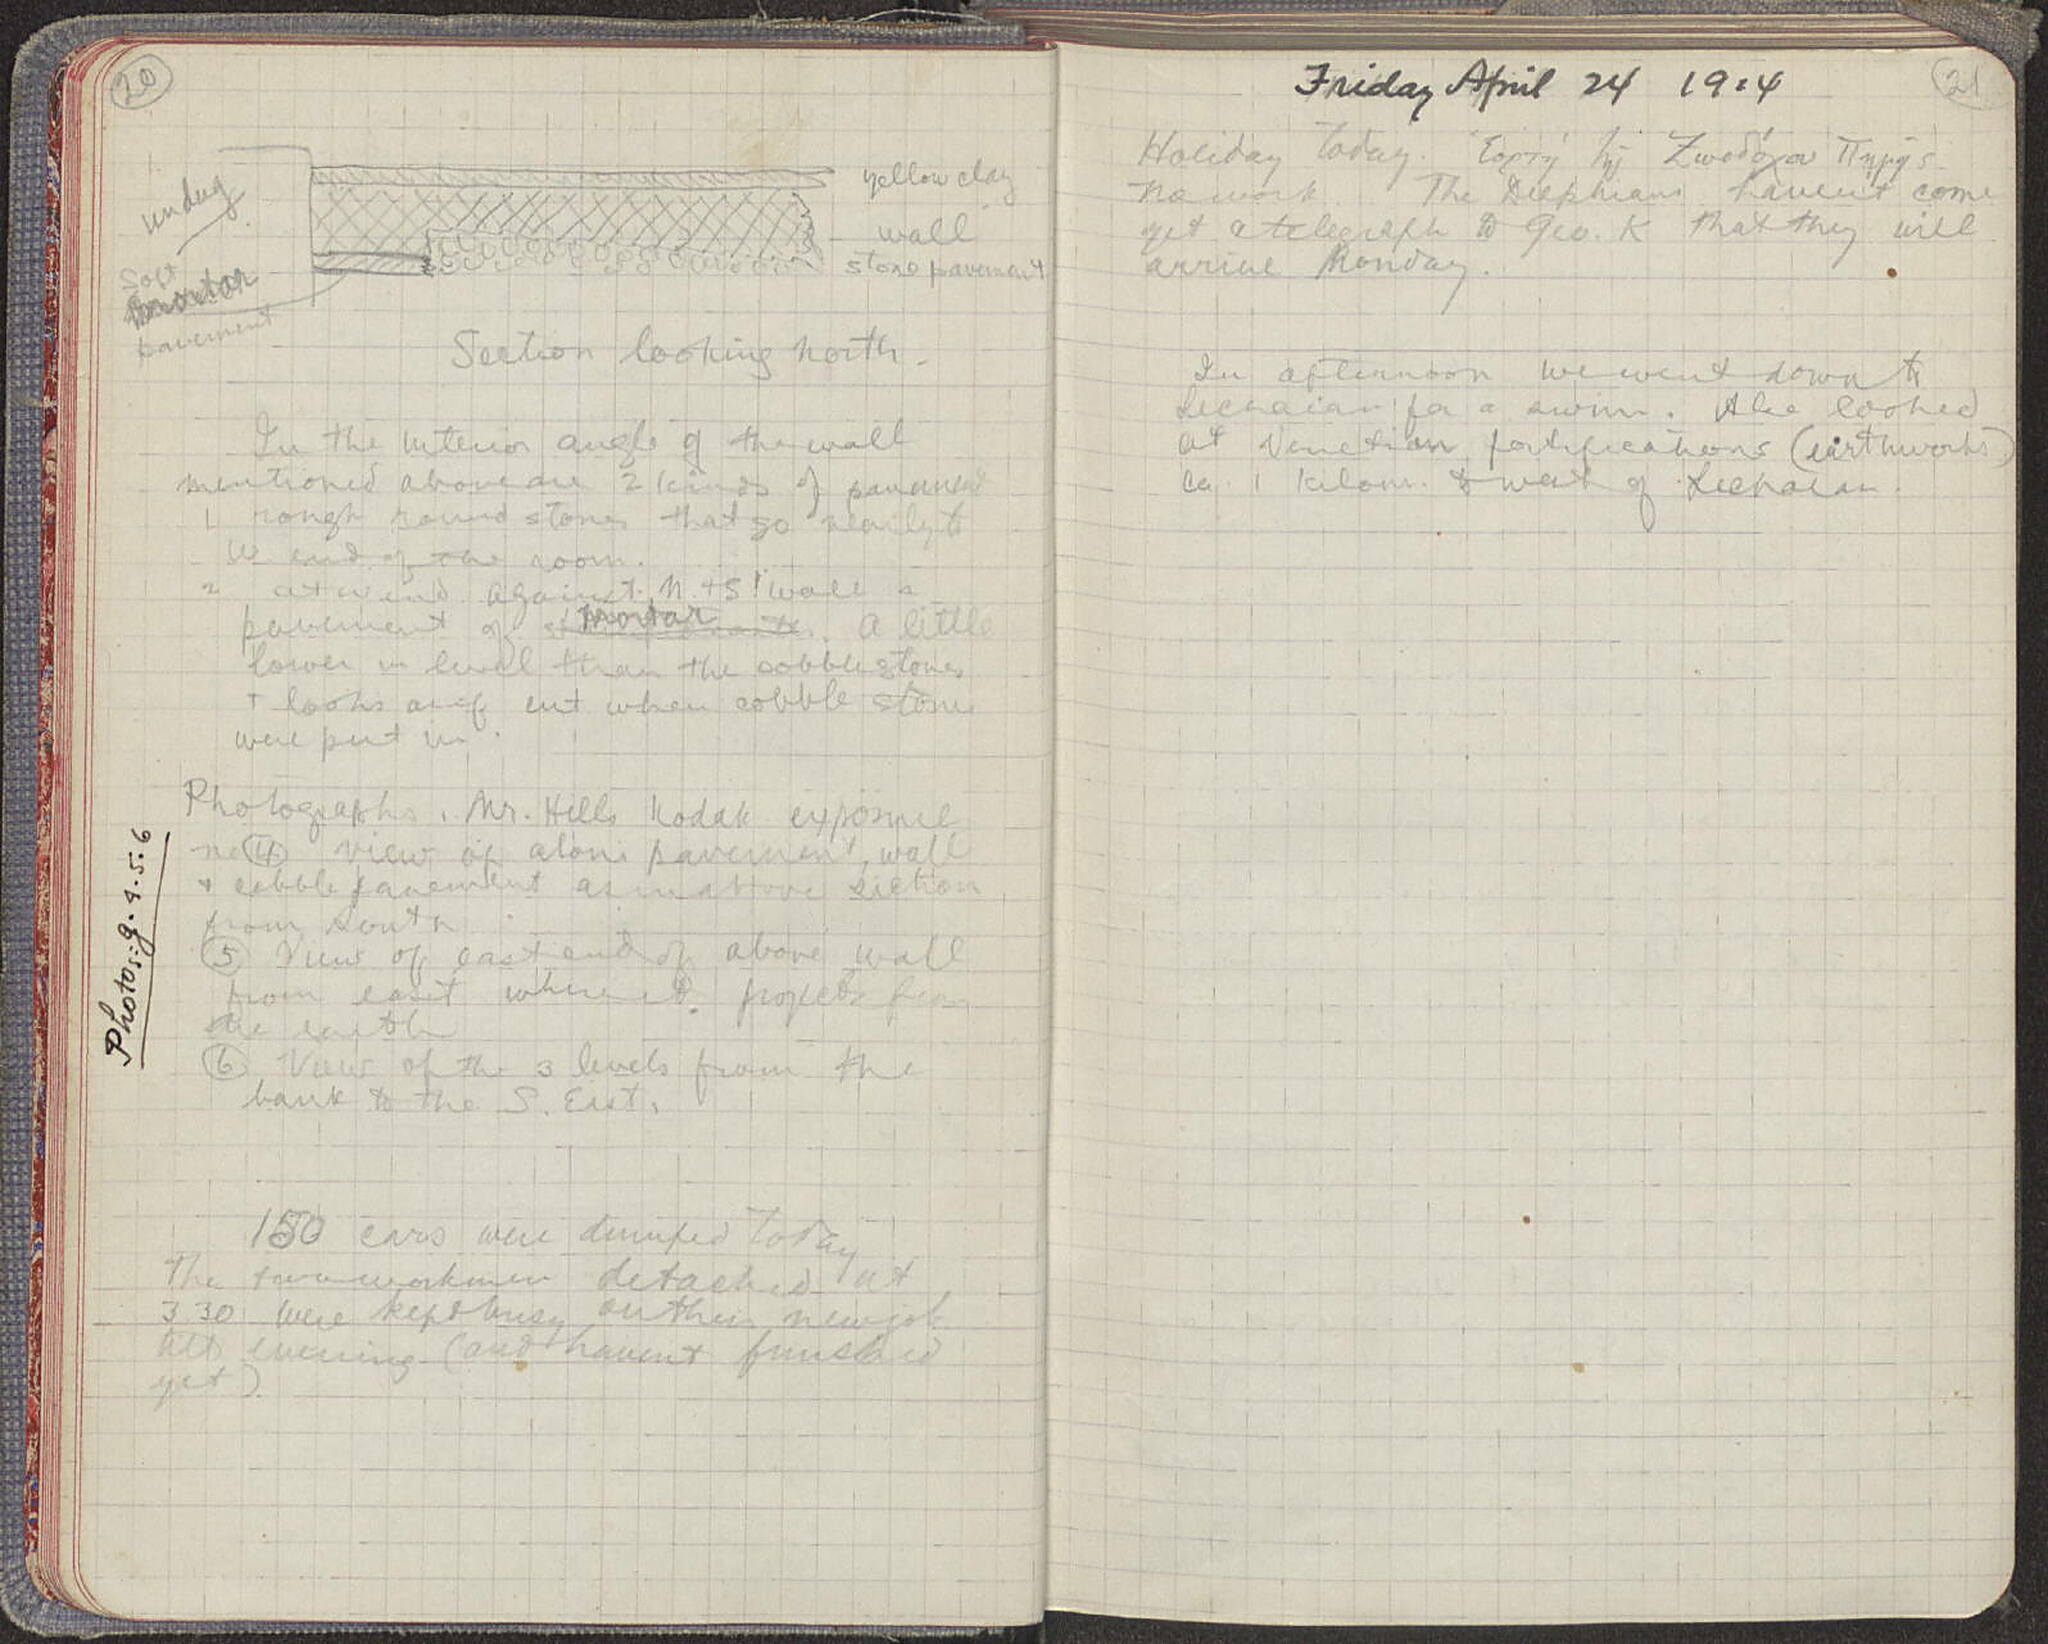 20
undug
yellow clay
wall
stone pavement
Soft
mortar
pavement
Section looking north.
In the interior angle of the wall
mentioned above are 2 kinds of pavement
1 rough round stones that go nearly to
W end of the room.
2 at W end against N. + S. wall a
pavement of mortar. A little
lower in level than the cobble stones
+ looks as if cut when cobble stones
were put in.
Photos: 9.4.5.6
Photographs. Mr. Hills Kodak exposure
no (4) view of stone pavement, wall
+ cobble pavement as in above section
from south
(5) View of east end of above wall
from east where it projects from
the earth
(6) View of the 3 levels from the
bank to the S. East.
150 cars were dumped today
The two workmen detached at
3.30 were kept busy on their new job
till evening (and havent finished
yet).
21
Friday April 24 1914
Holiday today. Ἑορτή τῆς Ζωοδόχου Πηγῆς
No work. The Delphians havent come
yet a telegraph to Geo. K that they will
arrive Monday.
In afternoon we went down to
Lechaion for a swim. Also looked
at Venetian fortifications (earthworks)
ca. 1 kilom. to west of Lechaion.